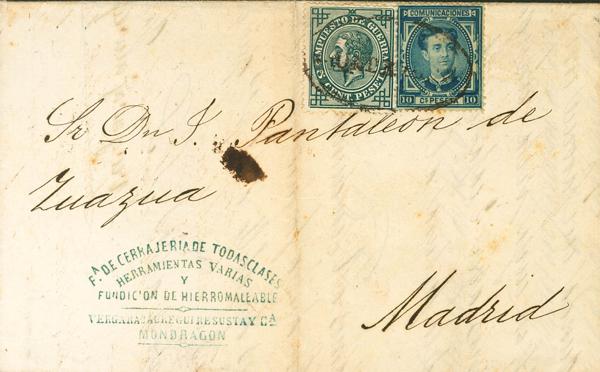 IMPUESTO DE GUERRA
5 CENT. PESETA
COMUNICACIONES
10 CS PESETA 10
Sr Dn J. Pantaleon de
Zuazua
Madrid
Fª DE CERRAJERIA DE TODAS CLASES
HERRAMIENTAS VARIAS
Y
FUNDICION DE HIERRO MALEABLE
VERGARAJAUREGUI RESUSTA Y Cª
MONDRAGON